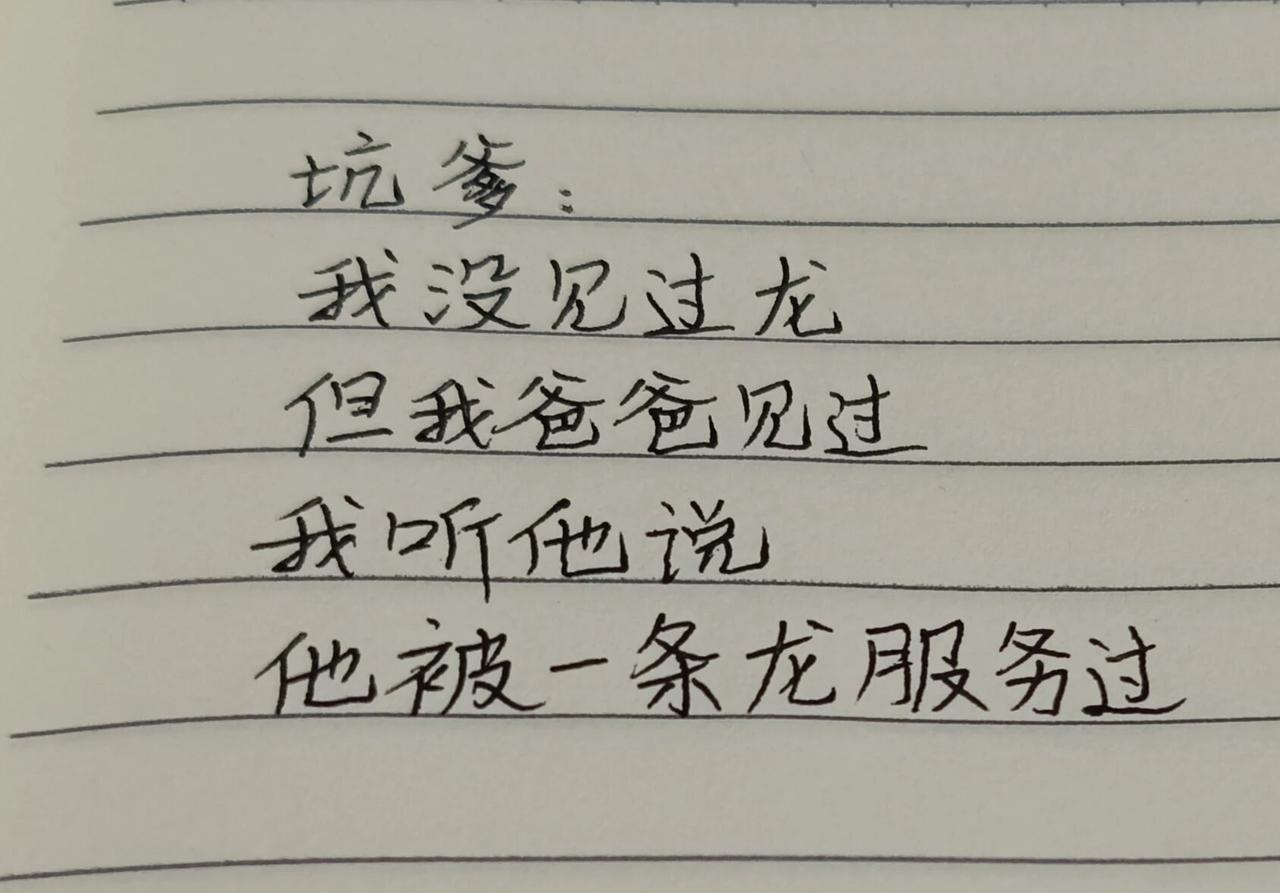 坑爹：
我没见过龙
但我爸爸见过
我听他说
他被一条龙服务过